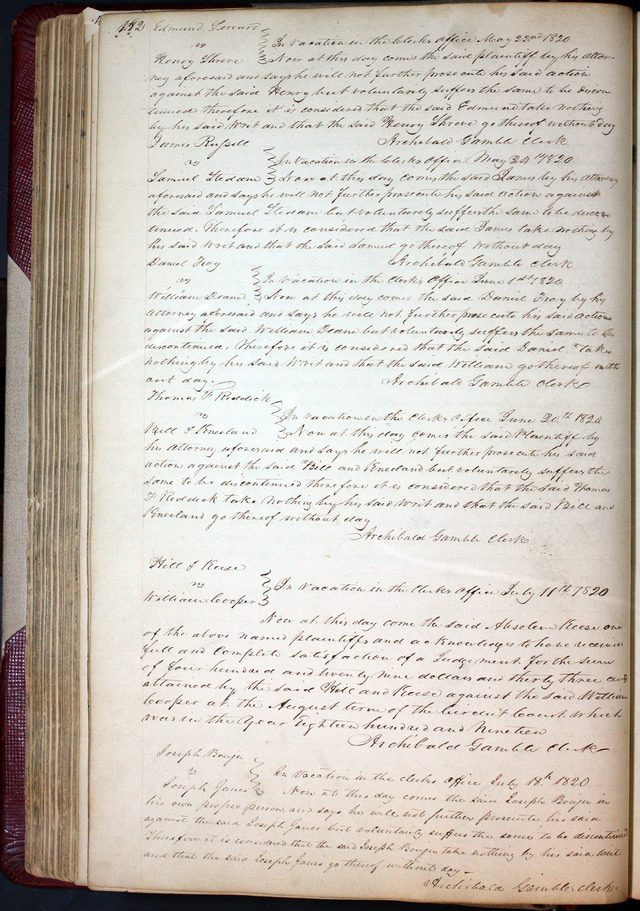 172 Edmund
In Vacation in the Clerks Office May 22nd 1820
vs
Henry Shreve Now at this day come the said plaintiff by his Attor-
ney aforesaid and says he will not further prosecute his said action
against the said Henry but voluntarely suffers the same to be discon
tinued therefore it is considered that the said Edmund take nothing
by his said Writ and that the said Henry Shreve go thereof without day
James Russell Archibald Gamble Clerk
vs In Vacation in the Clerks Office May 1820
Samuel Now at this day comes the said James by his Attorney
aforesaid and says he will not further prosecute his said action against
the said Samuel but voluntarely suffers the same to be discon
tinued. Therefore it is considered that the said James take nothing by
his said Writ and that the said Samuel go thereof without day
Daniel Troy Archibald Gamble Clerk
vs In Vacation in the Clerks Office June 1st 1820
William Deane Now at this day comes the said Daniel Troy by his
Attorney aforesaid and says he will not further prosecute his said action
against the said William Deane but voluntarely suffers the same to be
discontinued. Therefore it is considered that the said Daniel take
nothing by his said Writ and that the said William go thereof with
out day. Archibald Gamble Clerk
Thomas F Riddick
vs In Vacation in the Clerks Office June 20th 1820
Bill & Kneeland Now at this day comes the said Plaintiff by
his Attorney aforesaid and says he will not further prosecute his said
action against the said Bill and Kneeland but voluntarely suffers the
same to be discontinued therefore it is considered that the said Thomas
F Riddick take nothing by his said Writ and that the said Bill and
Kneeland go thereof without day
Archibald Gamble Clerk
Hill & Keese
vs In Vacation in the Clerks Office July 11th 1820
William Cooper
Now at this day come the said Absolem Keese one
of the above named plaintiffs and acknowledges to have received
full and complete satisfaction of a Judgement for the sum
of four hundred and twenty nine dollars and thirty three cents
attained by the said Hill and Keese against the said William
Cooper at the August term of the Circuit Court which
was in the Year Eighteen hundred and Nineteen
Archibald Gamble Clerk
Joseph Bouju
vs In Vacation in the clerks office July 18th 1820
Joseph Janes Now at this day comes the said Joseph Bouju in
his own proper person and says he will not further prosecute his said
against the said Joseph Janes but voluntarily suffers the same to be discontinued
Therefore it is considered that the said Joseph Bouju take nothing by his said writ
and that the said Joseph Janes go thereof without day
Archibald Gamble Clerk